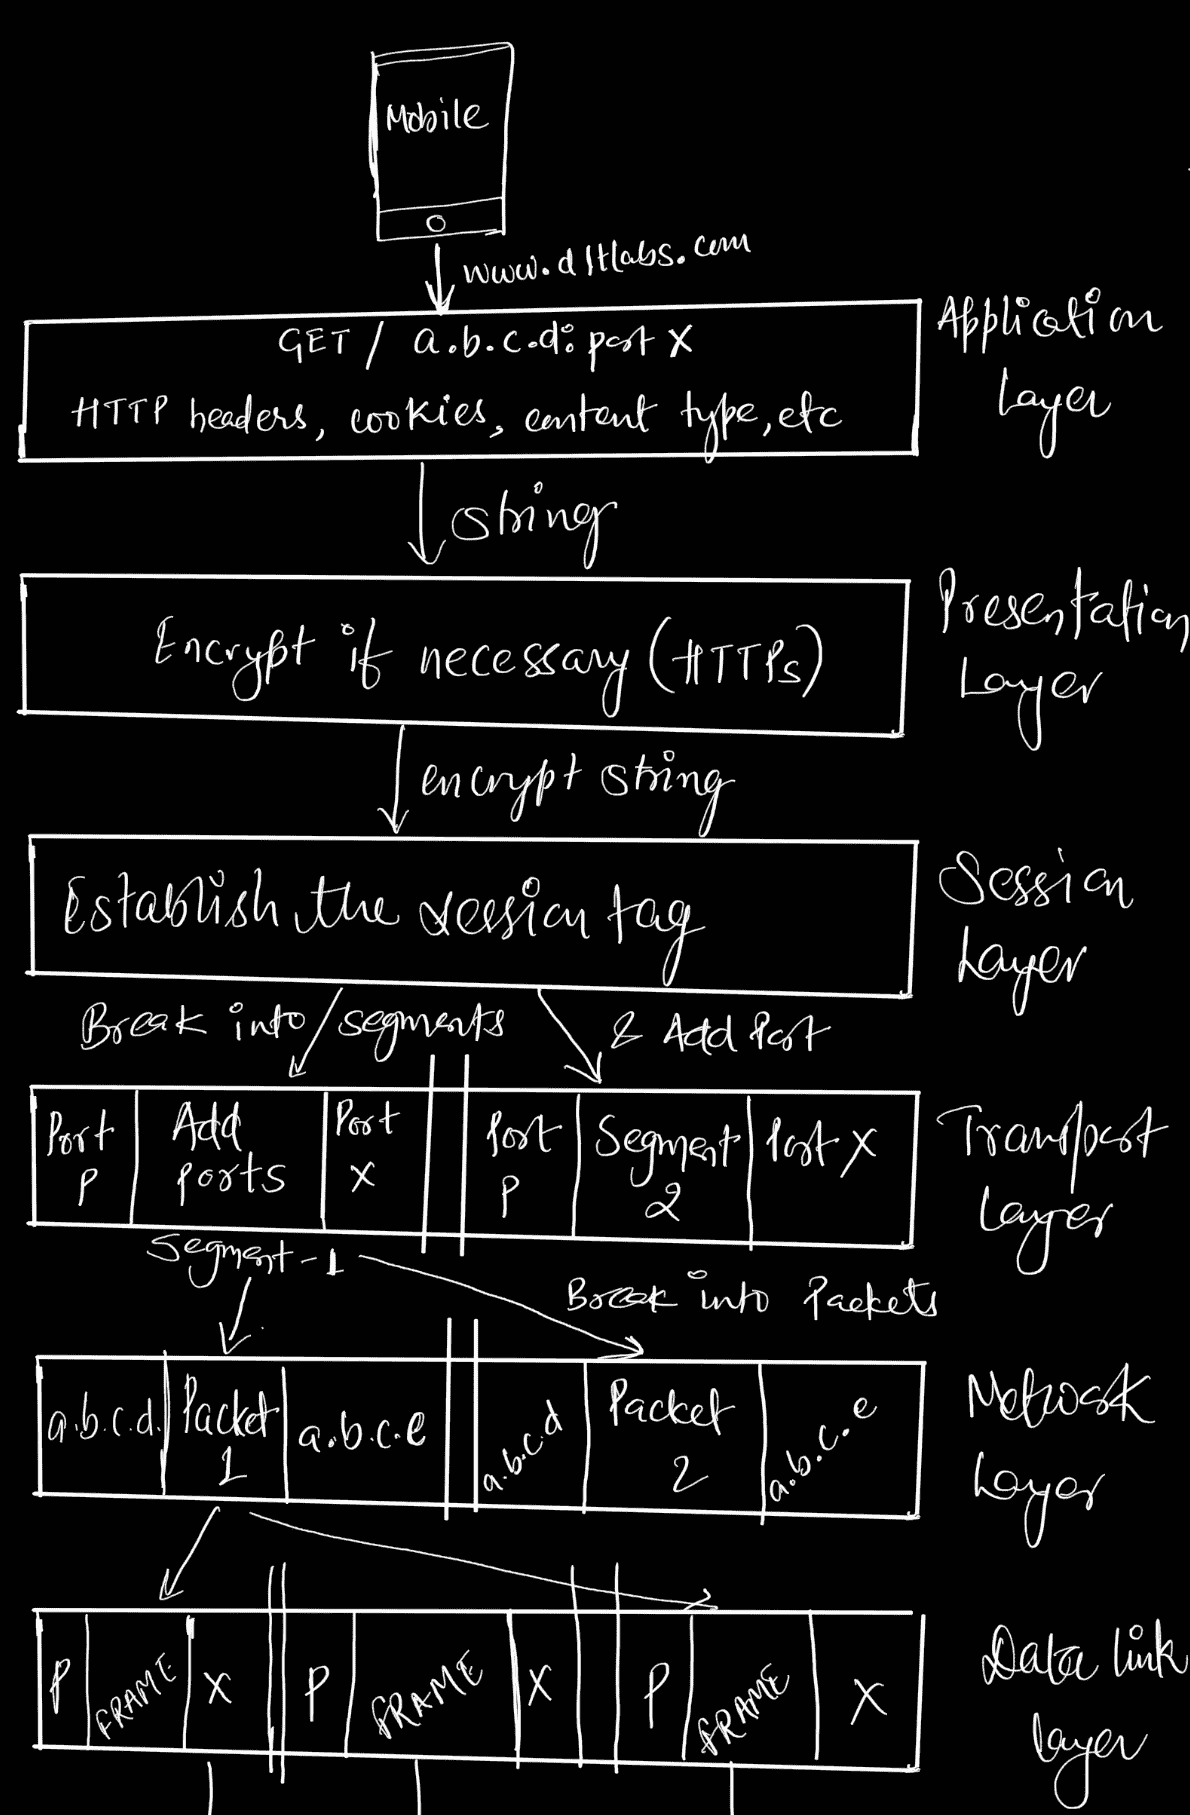 Mobile
www.dltlabs.com
GET / a.b.c.d: port X
HTTP headers, cookies, content type, etc
Application
Layer
string
Encrypt if necessary (HTTPs)
Presentation
Layer
encrypt string
Establish the session tag
Session
Layer
Break into segments & Add Port
Port P
Add ports
Port X
Port P
Segment 2
Port X
Transport
Layer
Segment-1
Break into Packets
a.b.c.d.
Packet 1
a.b.c.e
a.b.c.d
Packet 2
a.b.c.e
Network
Layer
P
FRAME
X
P
FRAME
X
P
FRAME
X
Data link
layer